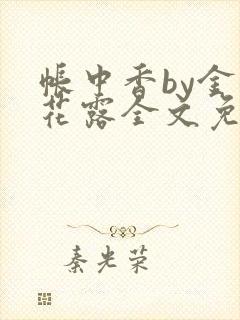 帐中香by金
花露全文免
秦光荣